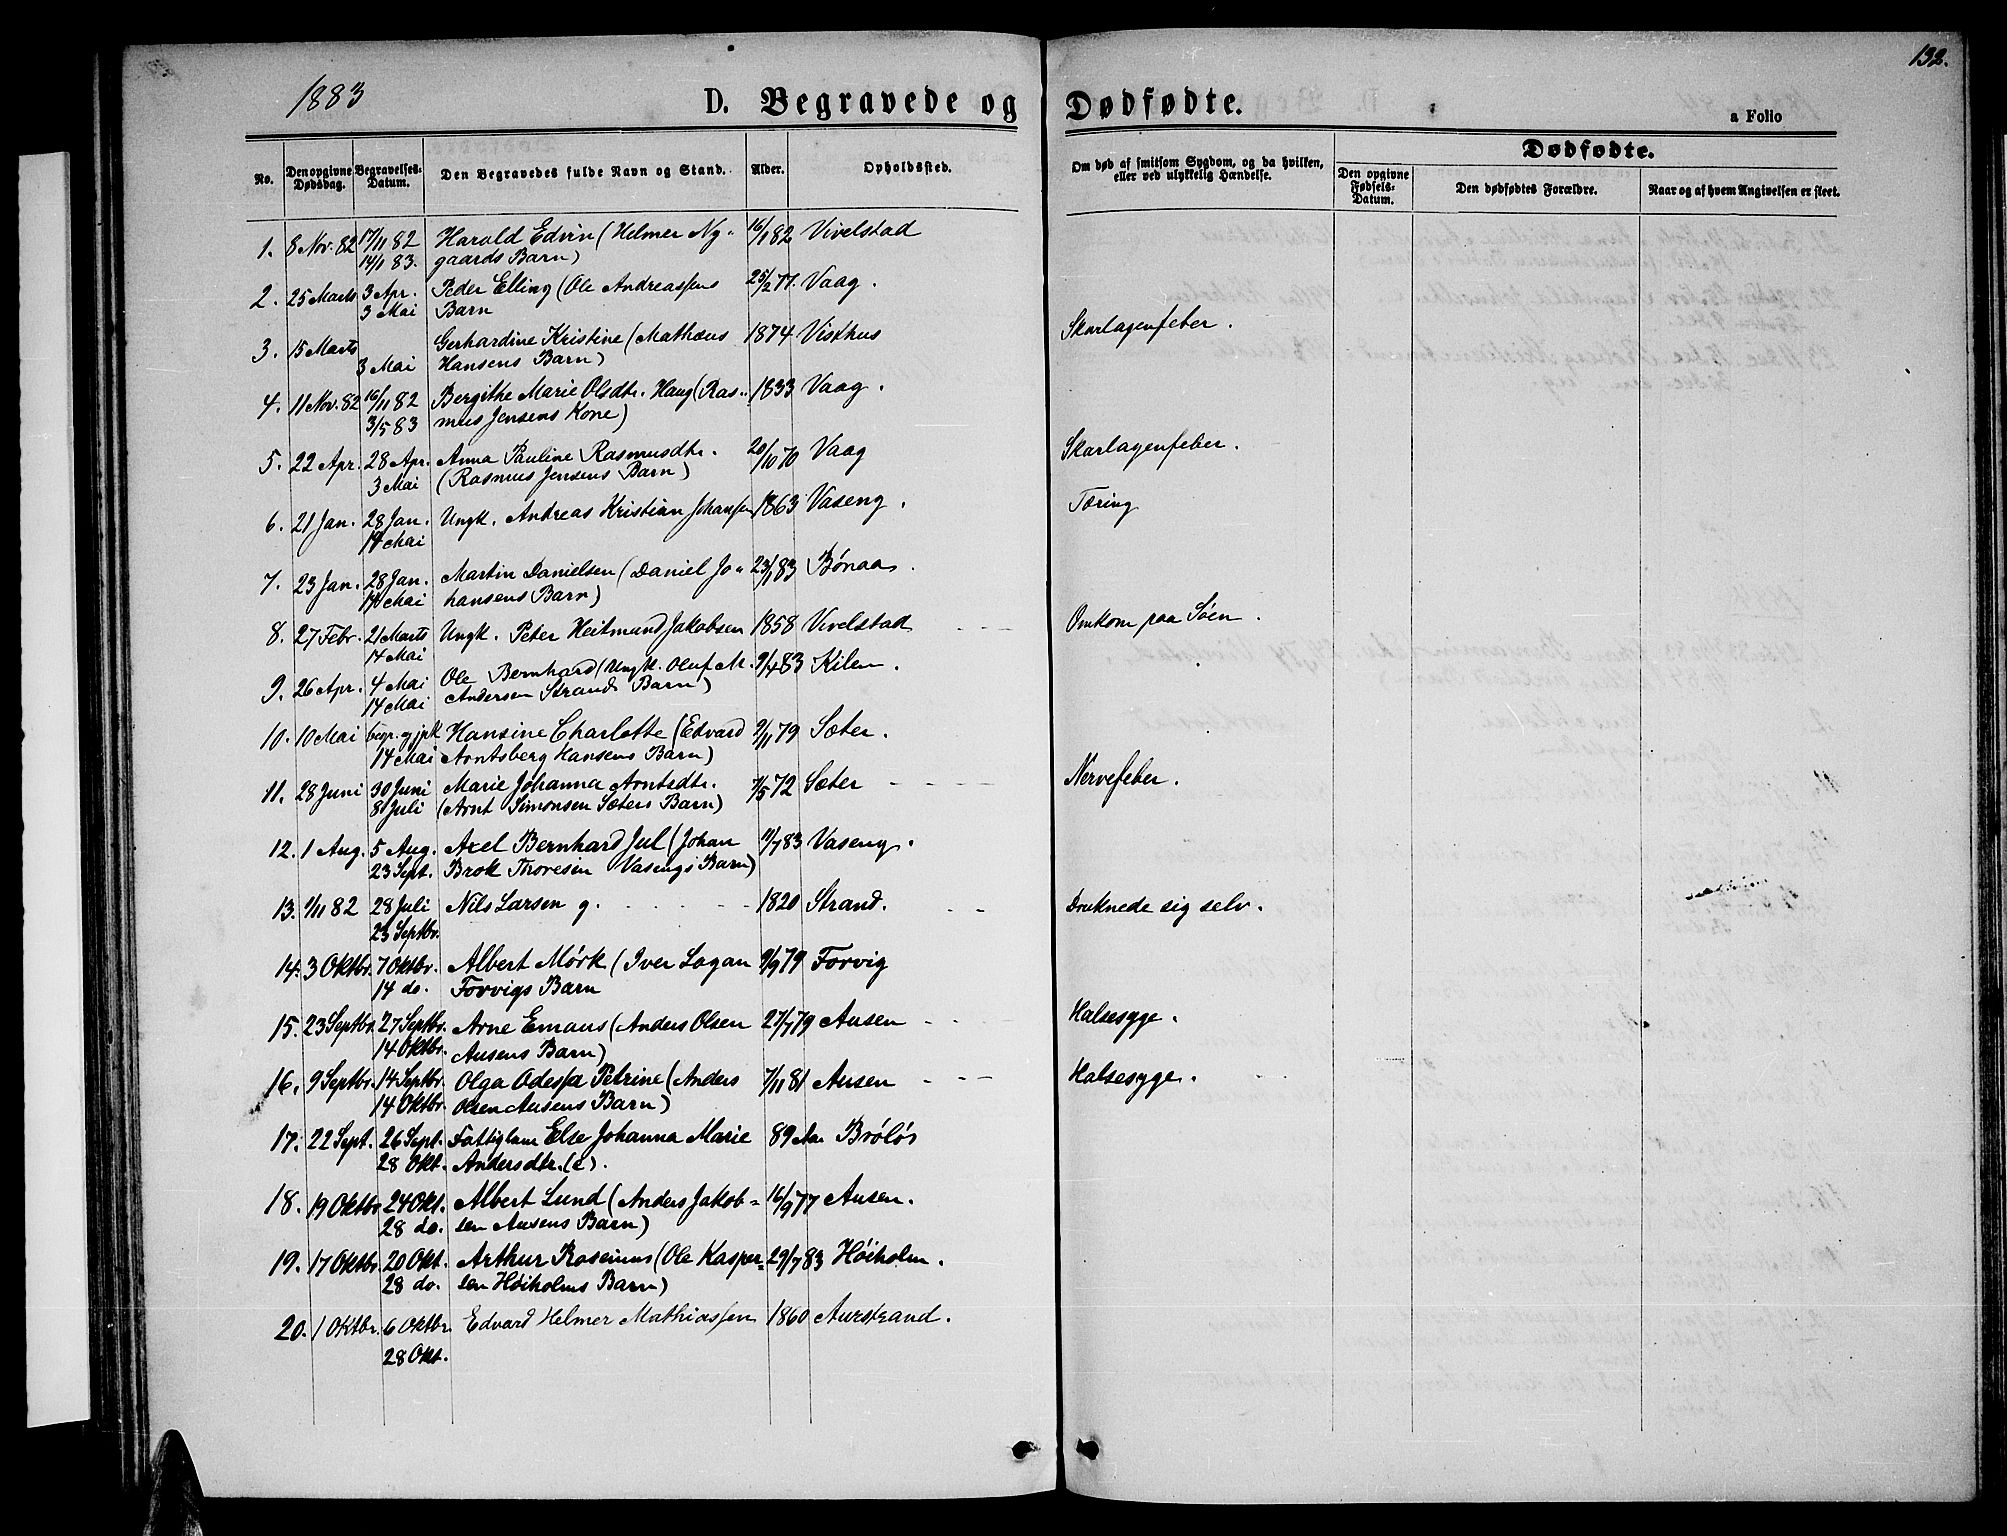 132.
1883
D. Begravede og Dødfødte.
a Folio
No.
Den opgivne Dødsdag.
Begravelses-Datum.
Den Begravedes fulde Navn og Stand.
Alder.
Opholdssted.
Om død af smitsom Sygdom, og da hvilken, eller ved ulykkelig Hændelse.
Dødfødte.
Den opgivne Fødsels-Datum.
Den dødfødtes Forældre.
Naar og af hvem Angivelsen er skeet.
1. 8 Nov. 82 17/11 82 Harald Edvin (Helmer Ny- 16/1 82 Vivelstad
14/1 83. gaards Barn)
2. 25 Marts 3 Apr. Peder Elling (Ole Andreassens 25/2 77. Vaag.
3 Mai Barn
3. 15 Marts Gerhardine Kristine (Mathæus 1874 Visthus Skarlagenfeber.
3 Mai Hansens Barn)
4. 11 Nov. 82 16/11 82 Bergithe Marie Olsdtr. Haug (Ras- 1833 Vaag.
3/5 83 mus Jensens Kone)
5. 22 Apr. 28 Apr. Anna Pauline Rasmusdtr. 20/10 70 Vaag Skarlagenfeber.
3 Mai (Rasmus Jensens Barn)
6. 21 Jan. 28 Jan. Ungk. Andreas Kristian Johansen 1863 Vaseng. Tæring
14 Mai
7. 23 Jan. 28 Jan. Martin Danielsen (Daniel Jo- 23/1 83 Bønaas.
14 Mai hansens Barn)
8. 27 Febr. 21 Marts Ungk. Peter Heitmand Jakobsen 1858 Vivelstad Omkom paa Søen.
14 Mai
9. 26 Apr. 4 Mai Ole Bernhard (Ungk. Oluf M. 9/4 83 Kilen.
14 Mai Andersen Strands Barn)
10. 10 Mai begr. g jpk Hansine Charlotte (Edvard 9/11 79 Sæter.
14 Mai Arntsberg Hansens Barn)
11. 28 Juni 30 Juni Marie Johanna Arntsdtr. 7/5 72 Sæter Nervefeber.
8 Juli (Arnt Simonsen Sæters Barn)
12. 1 Aug. 5 Aug. Axel Bernhard Jul (Johan 11/7 83 Vaseng.
23 Sept. Brok Thoresen Vasengs Barn)
13. 1/11 82 28 Juli Nils Larsen g. 1820 Strand. Druknede sig selv.
23 Septbr.
14. 3 Oktbr. 7 Oktbr. Albert Mørk (Iver Logan 9/9 79 Forvig
14 do. Forvigs Barn
15. 23 Septbr. 27 Septbr. Arne Emaus (Anders Olsen 27/7 79 Ausen Halsesyge.
14 Oktbr. Ausens Barn)
16. 9 Septbr. 14 Septbr. Olga Odessa Petrine (Anders 7/11 81 Ausen Halsesyge.
14 Oktbr. Olsen Ausens Barn)
17. 22 Sept. 26 Sept. Fattiglem Else Johanna Marie 89 Aar Brøløs
28 Okt. Andersdtr. (e).
18. 19 Oktbr. 24 Okt. Albert Lund (Anders Jakob- 16/9 77 Ausen.
28 do. sen Ausens Barn)
19. 17 Oktbr. 20 Okt. Arthur Rasmus (Ole Kasper- 29/7 83 Høiholm.
28 do. sen Høiholms Barn)
20. 1 Oktbr. 6 Oktbr. Edvard Helmer Mathiassen 1860 Aurstrand.
28 Okt.